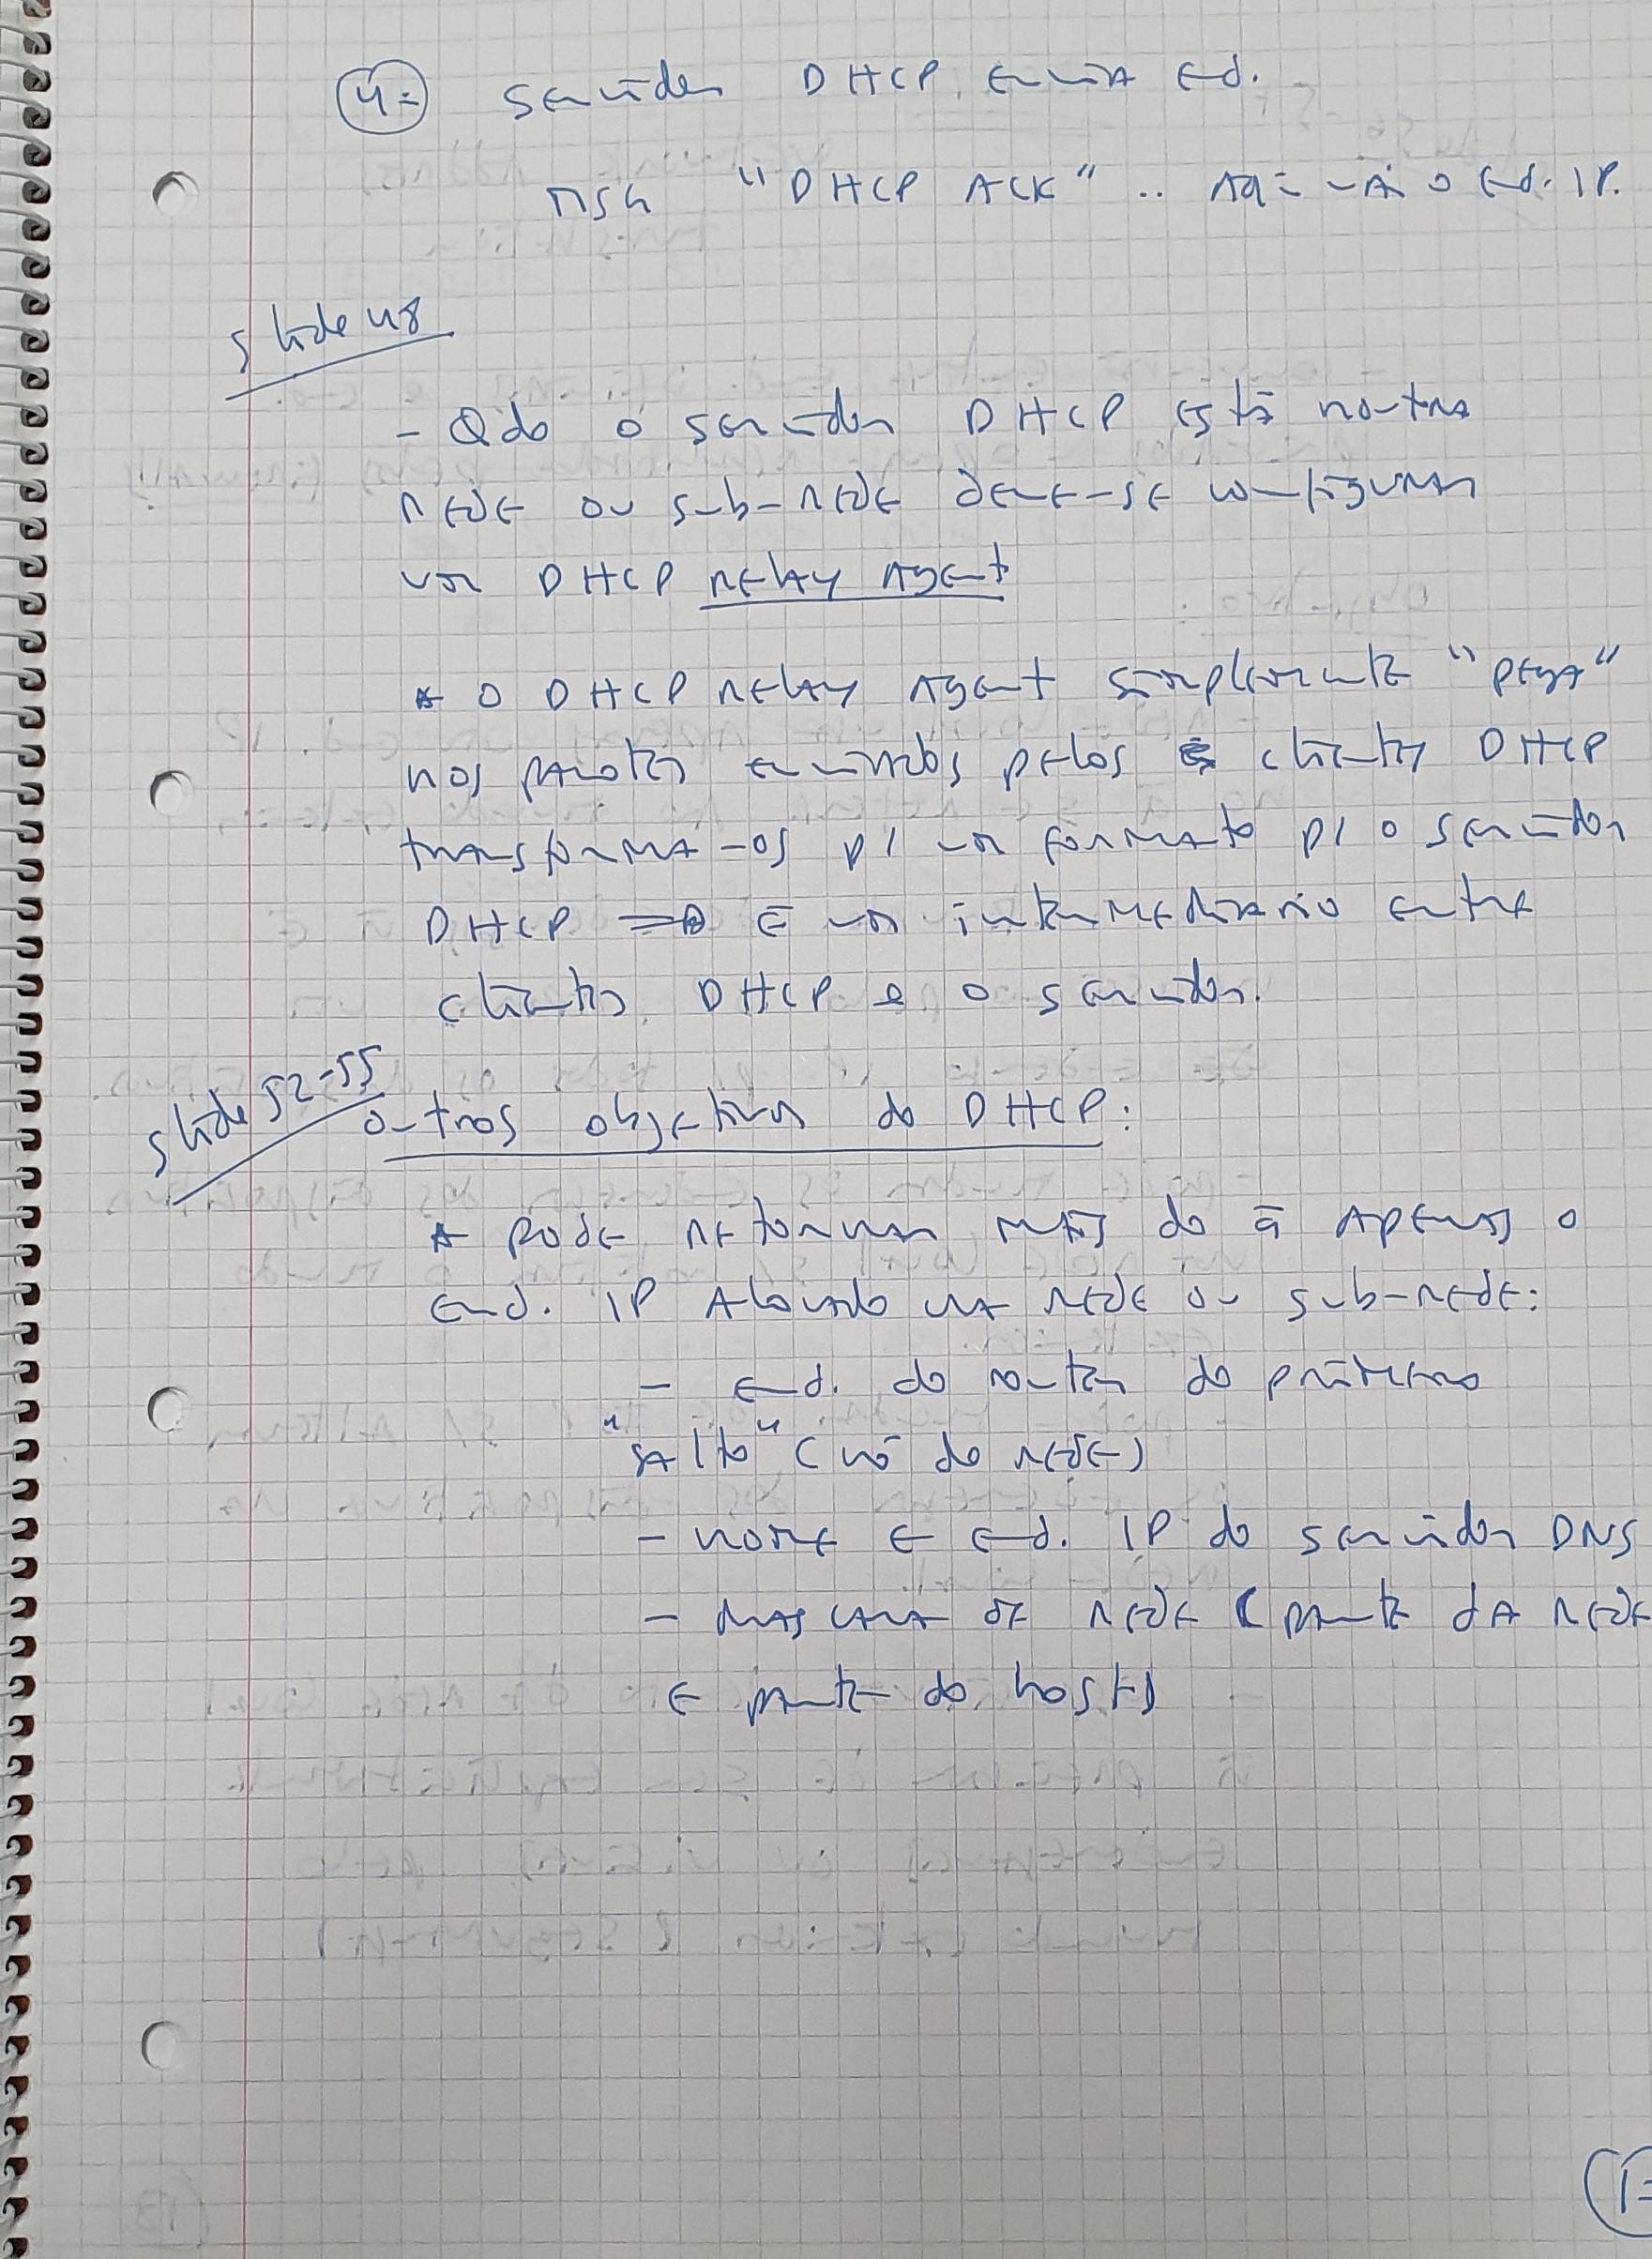 4= servidor DHCP envia end.
MSG "DHCP ACK" .. Aqi vai o end. IP.
slide 48
- Qdo o servidor DHCP está noutra
rede ou sub-rede deve-se configurar
um DHCP relay Agent
* O DHCP relay Agent simplesmente "pega"
nos pacotes enviados pelos clientes DHCP
transforma-os p/ um formato p/ o servidor
DHCP => É um intermediário entre
clientes DHCP e o servidor.
slide 52-55
outros objetivos do DHCP:
* pode retornar mais do q apenas o
end. IP Alocado na rede ou sub-rede:
- end. do router do primeiro
"salto" (nó de rede)
- nome e end. IP do servidor DNS
- mascara de rede (parte da rede
e parte do host)